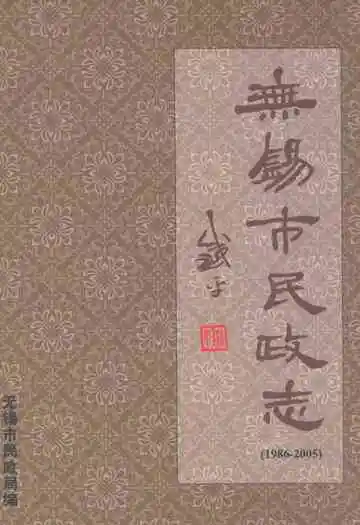 無锡市民政志
(1986-2005)
无锡市民政局编